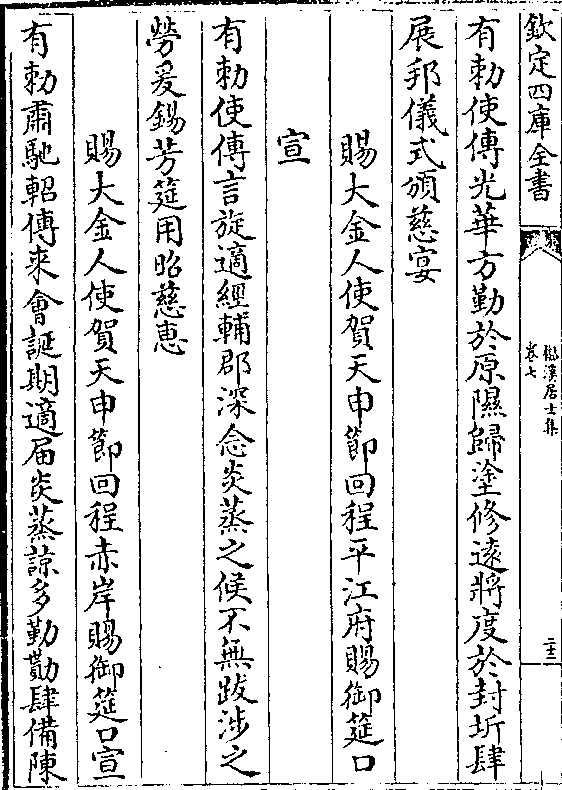 欽定四庫全書
檆溪居士集
卷七
二十三
有勅使傳光華方勤於原隰歸塗修遠將度於封圻肆
展邦儀式頒慈宴
賜大金人使賀天申節回程平江府賜御筵口
宣
有勅使傳言旋適經輔郡深念炎蒸之候不無跋涉之
勞爰錫芳筵用昭慈惠
賜大金人使賀天申節回程赤岸賜御筵口宣
有勅肅馳軺傳来會誕期適届炎蒸諒多勤勩肆備陳